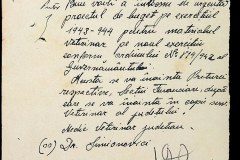 Bine voiți a întocmi de urgență
proectul de buget pe exercițiul
1943-944 pentru materialul
veterinar pe noul exercițiu
conform ordinului No
Guvernământului.
Acesta se va înainta Preturei
respective, Secției Financiare, după
care se va înainta în copie serv.
Veterinar al județului.
Medic Veterinar județean
(ss) Dr. Simionovici